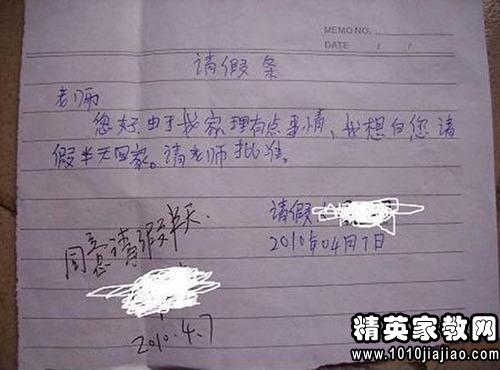 MEMO NO.
DATE / /
请假条
老师
您好,由于我家理有点事情,我想白您请
假半天回家。请老师批准。
请假
2010年04月7日
同意请假半天.
2010.4.7
精英家教网
www.1010jiajiao.com